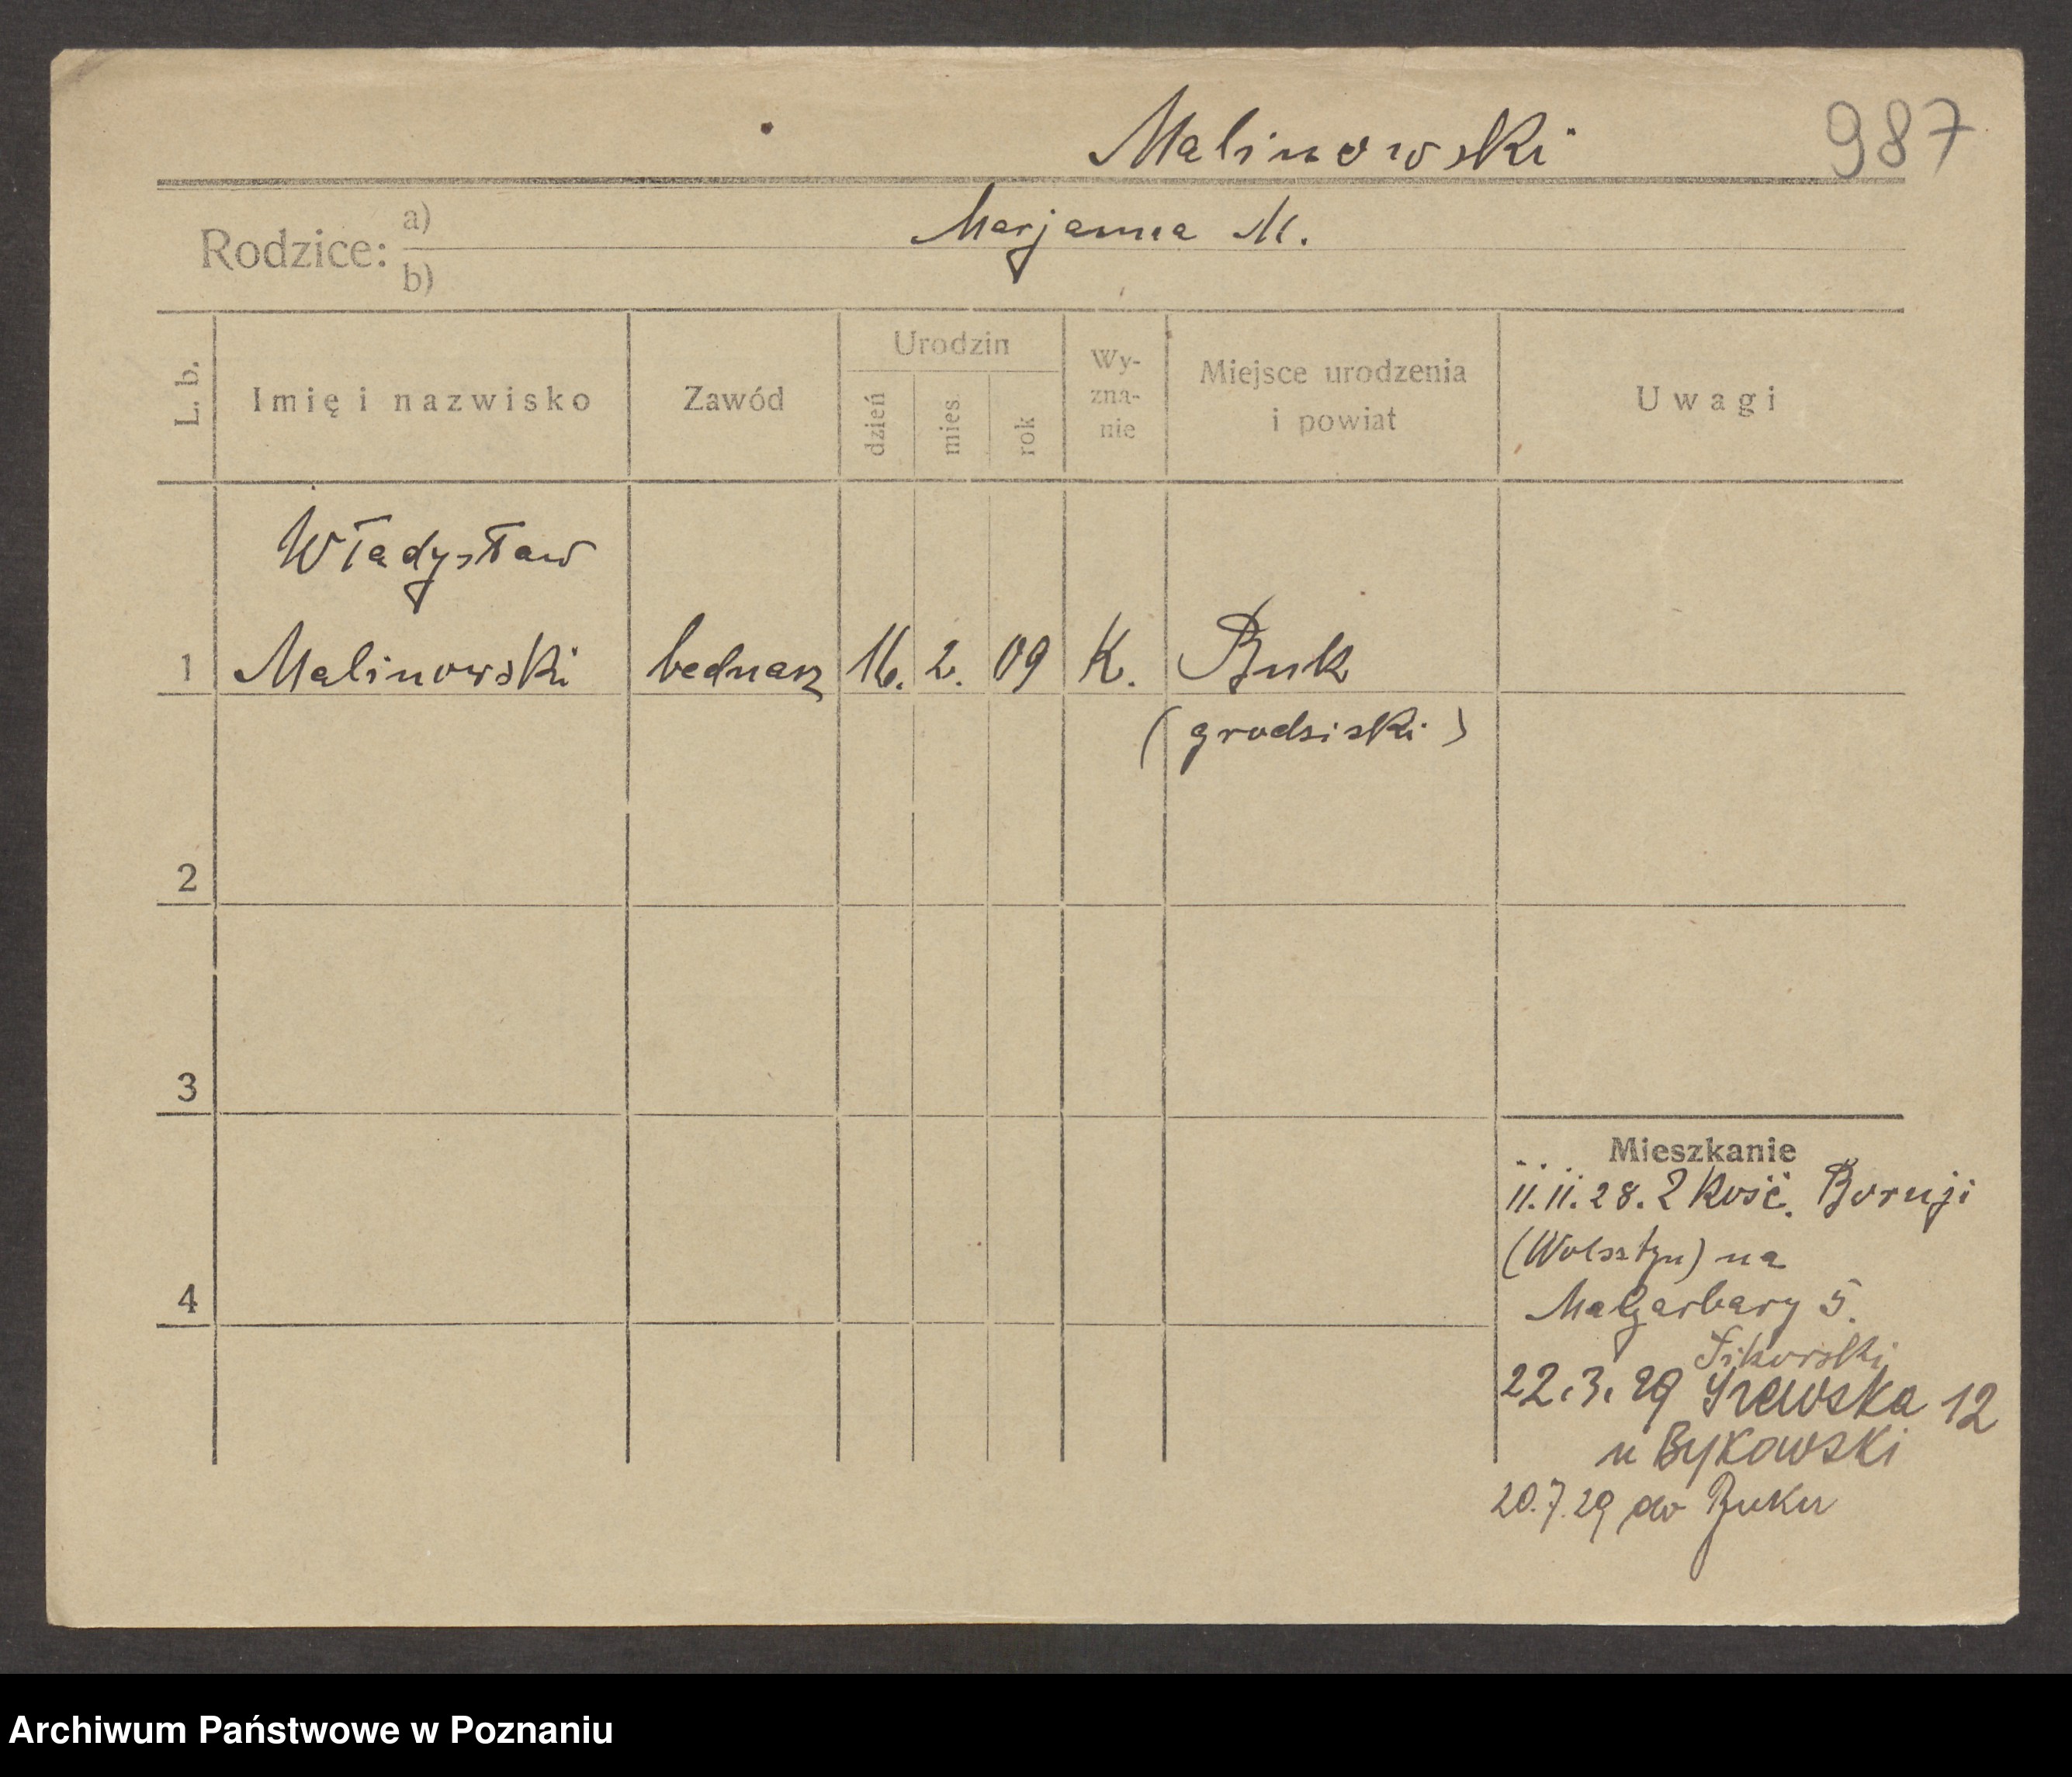 Malinowski 987
Rodzice: a) Marjanna M.
b)
L. b. Imię i nazwisko Zawód Urodzin dzień mies. rok Wy-zna-nie Miejsce urodzenia i powiat Uwagi
Władysław
1 Malinowski bednarz 16. 2. 09 K. Buk
(grodziski)
2
3
4
Mieszkanie
11.11.28. z Kość. Boruji
(Wolsztyn) na
Małgarbary 5.
Sikorski
22.3.29 12
u Bykowski
20.7.29 do Buku
Archiwum Państwowe w Poznaniu